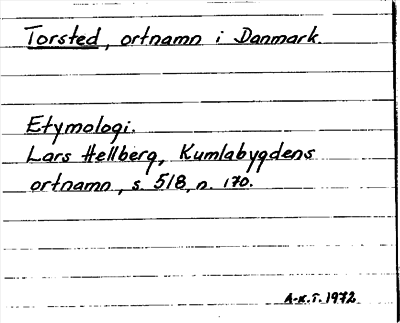 Torsted, ortnamn i Danmark.
Etymologi.
Lars Hellberg, Kumlabygdens
ortnamn, s. 518, n. 170.
A-K.T. 1972